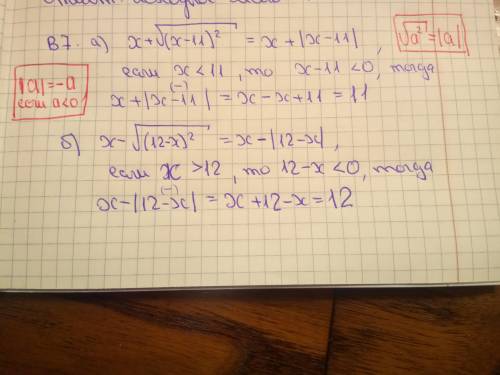 В7. а) x+√(x-11)² = x + |x-11|, √a² = |a|
если x < 11, то x-11 < 0, тогда
|a| = -a
если a<0
(-)
x + |x-11| = x - x + 11 = 11
б) x - √(12-x)² = x - |12-x|,
если x > 12, то 12-x < 0, тогда
(-)
x - |12-x| = x + 12 - x = 12